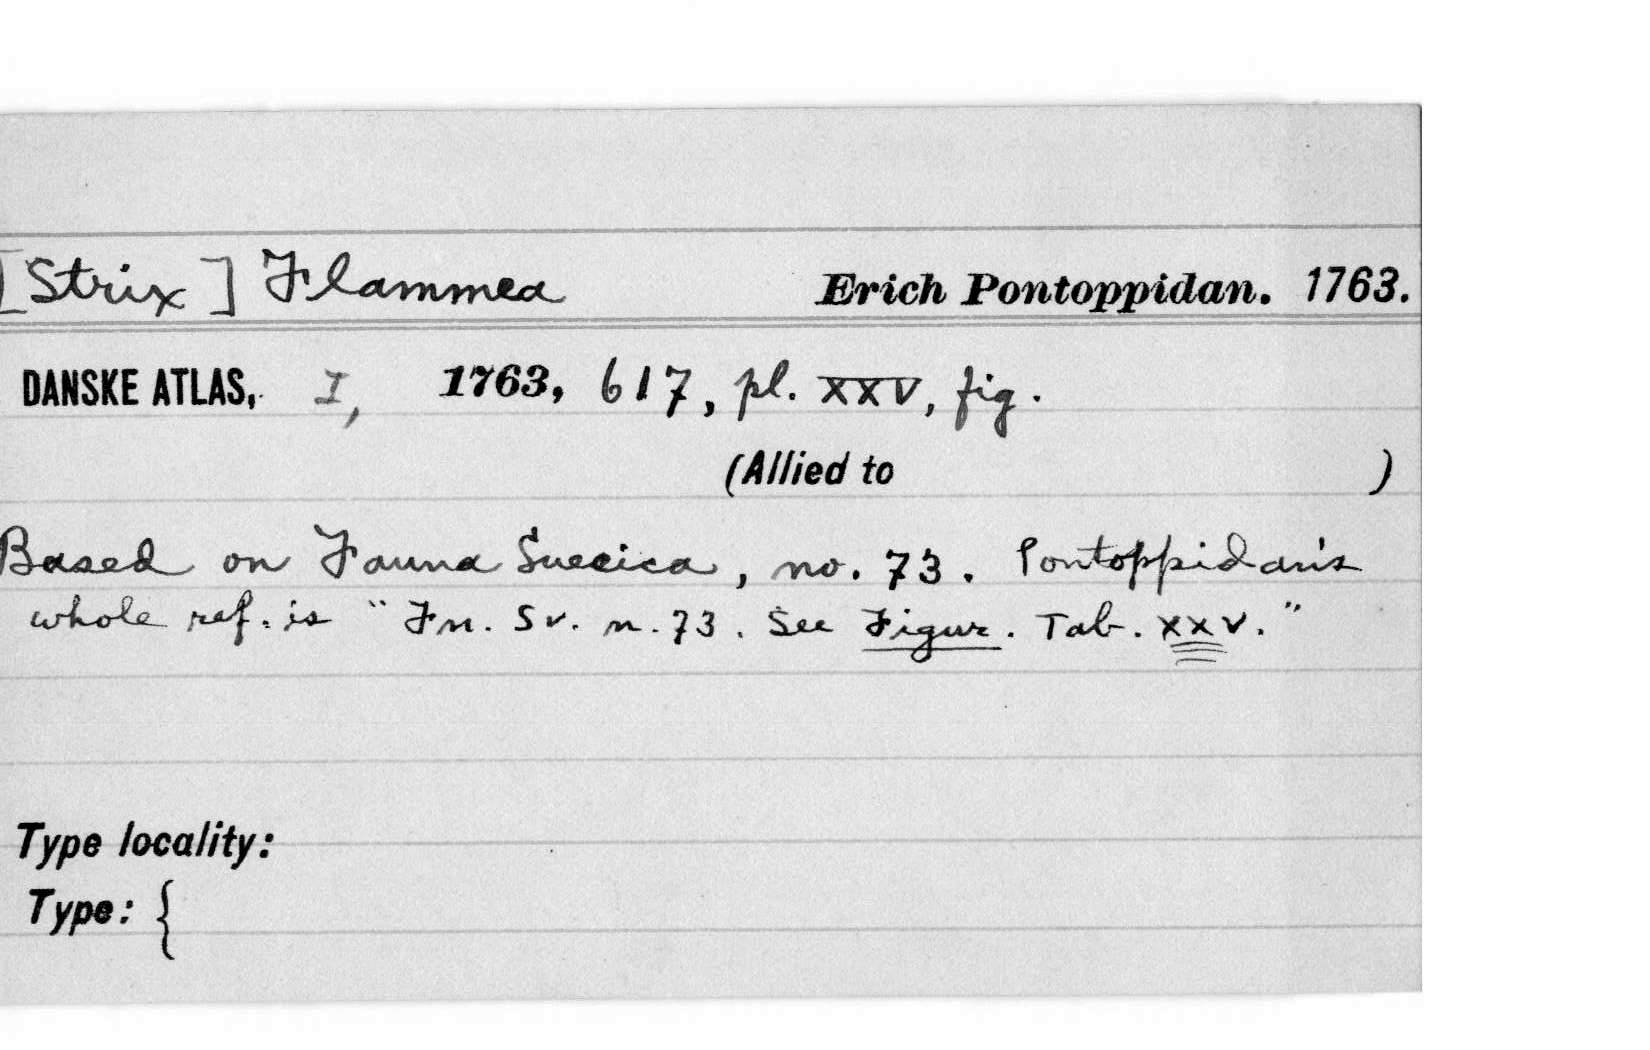 [Strix] Flammea Erich Pontoppidan. 1763.
DANSKE ATLAS, I, 1763, 617, pl. XXV, fig.
(Allied to )
Based on Fauna Suecica, no. 73. Pontoppidan's
whole ref. is "Fn. Sv. n. 73. See Figur. Tab. XXV."
Type locality:
Type: {